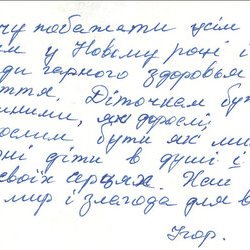 чу побажати усім
ім у Новому році і
ди гарного здоровья
ття. Діточкам бу
ними, як дорослі,
ослим бути як ми
рні діти в душі і
своїх серцях. Най
мир і злагода для в
Ігор.